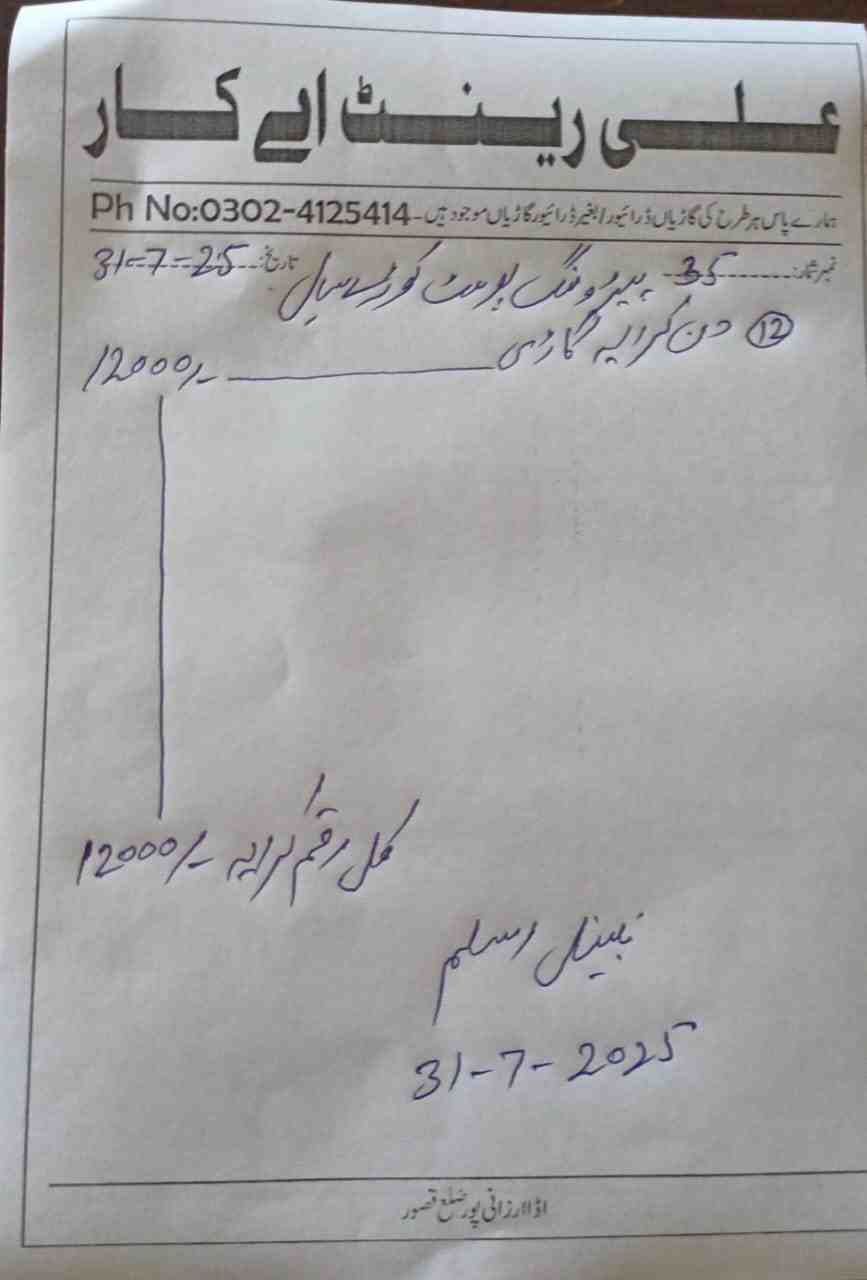 علی رینٹ اے کار
ہمارے پاس ہر طرح کی گاڑیاں ڈرائیور/بغیر ڈرائیور گاڑیاں موجود ہیں۔ Ph No:0302-4125414
نمبر شمار: 35 تاریخ: 31-7-25
پیٹرولنگ پوسٹ کوڑے سیال
(12) دن کرایہ گاڑی ــــــ 12000/-
کل رقم کرایہ 12000/-
نبیل اسلم
31-7-2025
اڈا ارزانی پور ضلع قصور